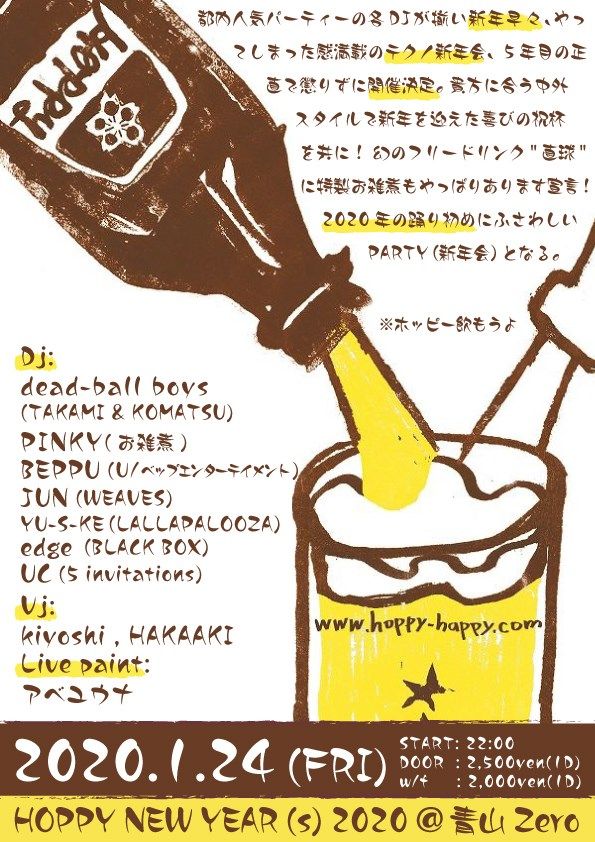 都内人気パーティーの各DJが揃い新年早々、やっ
てしまった感満載のテクノ新年会、5年目の正
直で懲りずに開催決定。貴方に合う中外
スタイルで新年を迎えた喜びの祝杯
を共に！幻のフリードリンク"直球"
に特製お雑煮もやっぱりあります宣言！
2020年の踊り初めにふさわしい
PARTY(新年会)となる。
※ホッピー飲もうよ
Hoppy
Dj:
dead-ball boys
(TAKAMI & KOMATSU)
PINKY(お雑煮)
BEPPU (U/ベップエンターテイメント)
JUN (WEAVES)
YU-S-KE(LALLAPALOOZA)
edge (BLACK BOX)
UC (5 invitations)
Vj:
kiyoshi , HAKAAKI
Live paint:
アベユウナ
www.hoppy-happy.com
2020.1.24 (FRI)
START: 22:00
DOOR : 2,500yen(1D)
w/f : 2,000yen(1D)
HOPPY NEW YEAR (s) 2020 @ 青山 Zero